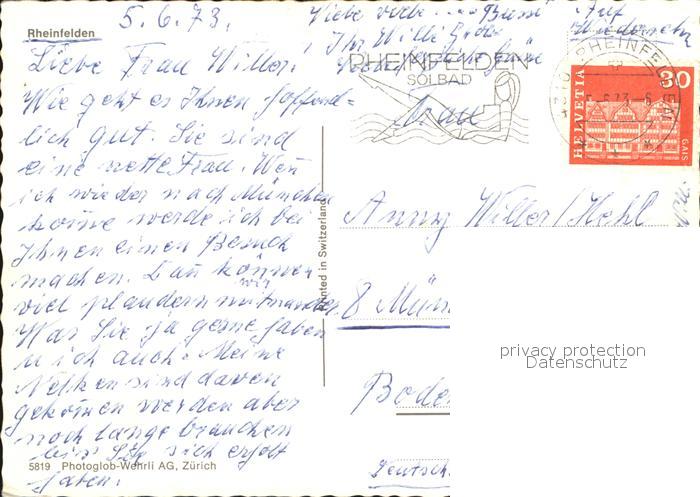 Rheinfelden
5.6.73.
Liebe Frau Willer.
Wie geht es Ihnen hoffend=
lich gut. Sie sind
eine nette Frau. Wen
ich wieder nach München
kome werde ich bei
Ihnen einen Besuch
machen. Dan können
wir
viel plaudern mit einander
Was Sie ja gerne haben
u ich auch. Meine
Nelken sind davon
gekomen werden aber
noch lange brauchen
bis Sie sich erholt
haben.
5819 Photoglob-Wehrli AG, Zürich
Printed in Switzerland
Auf
Wiedersehn
Ihr Willi
RHEINFELDEN
SOLBAD
RHEINFELDEN
HELVETIA
30
GAIS
Frau
Anny Willer/Hehl
8 Mün
Bode
Deutsch
privacy protection
Datenschutz